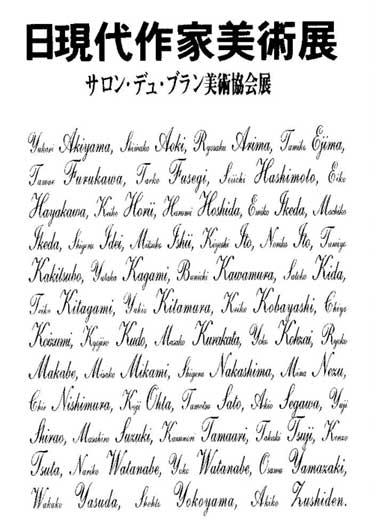 日現代作家美術展
サロン・デュ・ブラン美術協会展
Yukari Akiyama, Shizuko Aoki, Ryosaku Arima, Tamiko Ejima,
Tamae Furukawa, Taeko Fusegi, Seiichi Hashimoto, Eiko
Hayakawa, Keiko Horii, Harumi Hoshida, Emiko Ikeda, Machiko
Ikeda, Shigeru Idei, Mitsuko Ishii, Kiyoshi Ito, Noriko Ito, Tamiyo
Kakitsubo, Yutaka Kagami, Bunichi Kawamura, Satoko Kida,
Toeko Kitagami, Yukio Kitamura, Keiko Kobayashi, Chiyo
Koezumi, Kyojiro Kudo, Masako Kurakata, Yoko Kohzai, Ryoko
Makabe, Masako Mikami, Shigeru Nakashima, Mima Nezu,
Chie Nishimura, Koji Ohta, Tametsu Sato, Akio Segawa, Yuji
Shirao, Masahiro Suzuki, Kazunori Tamaari, Takaki Tsuji, Kenzo
Tsuta, Noriko Watanabe, Yoko Watanabe, Osawa Yamazaki,
Wakako Yasuda, Yokoyama, Akiko Zushiden.